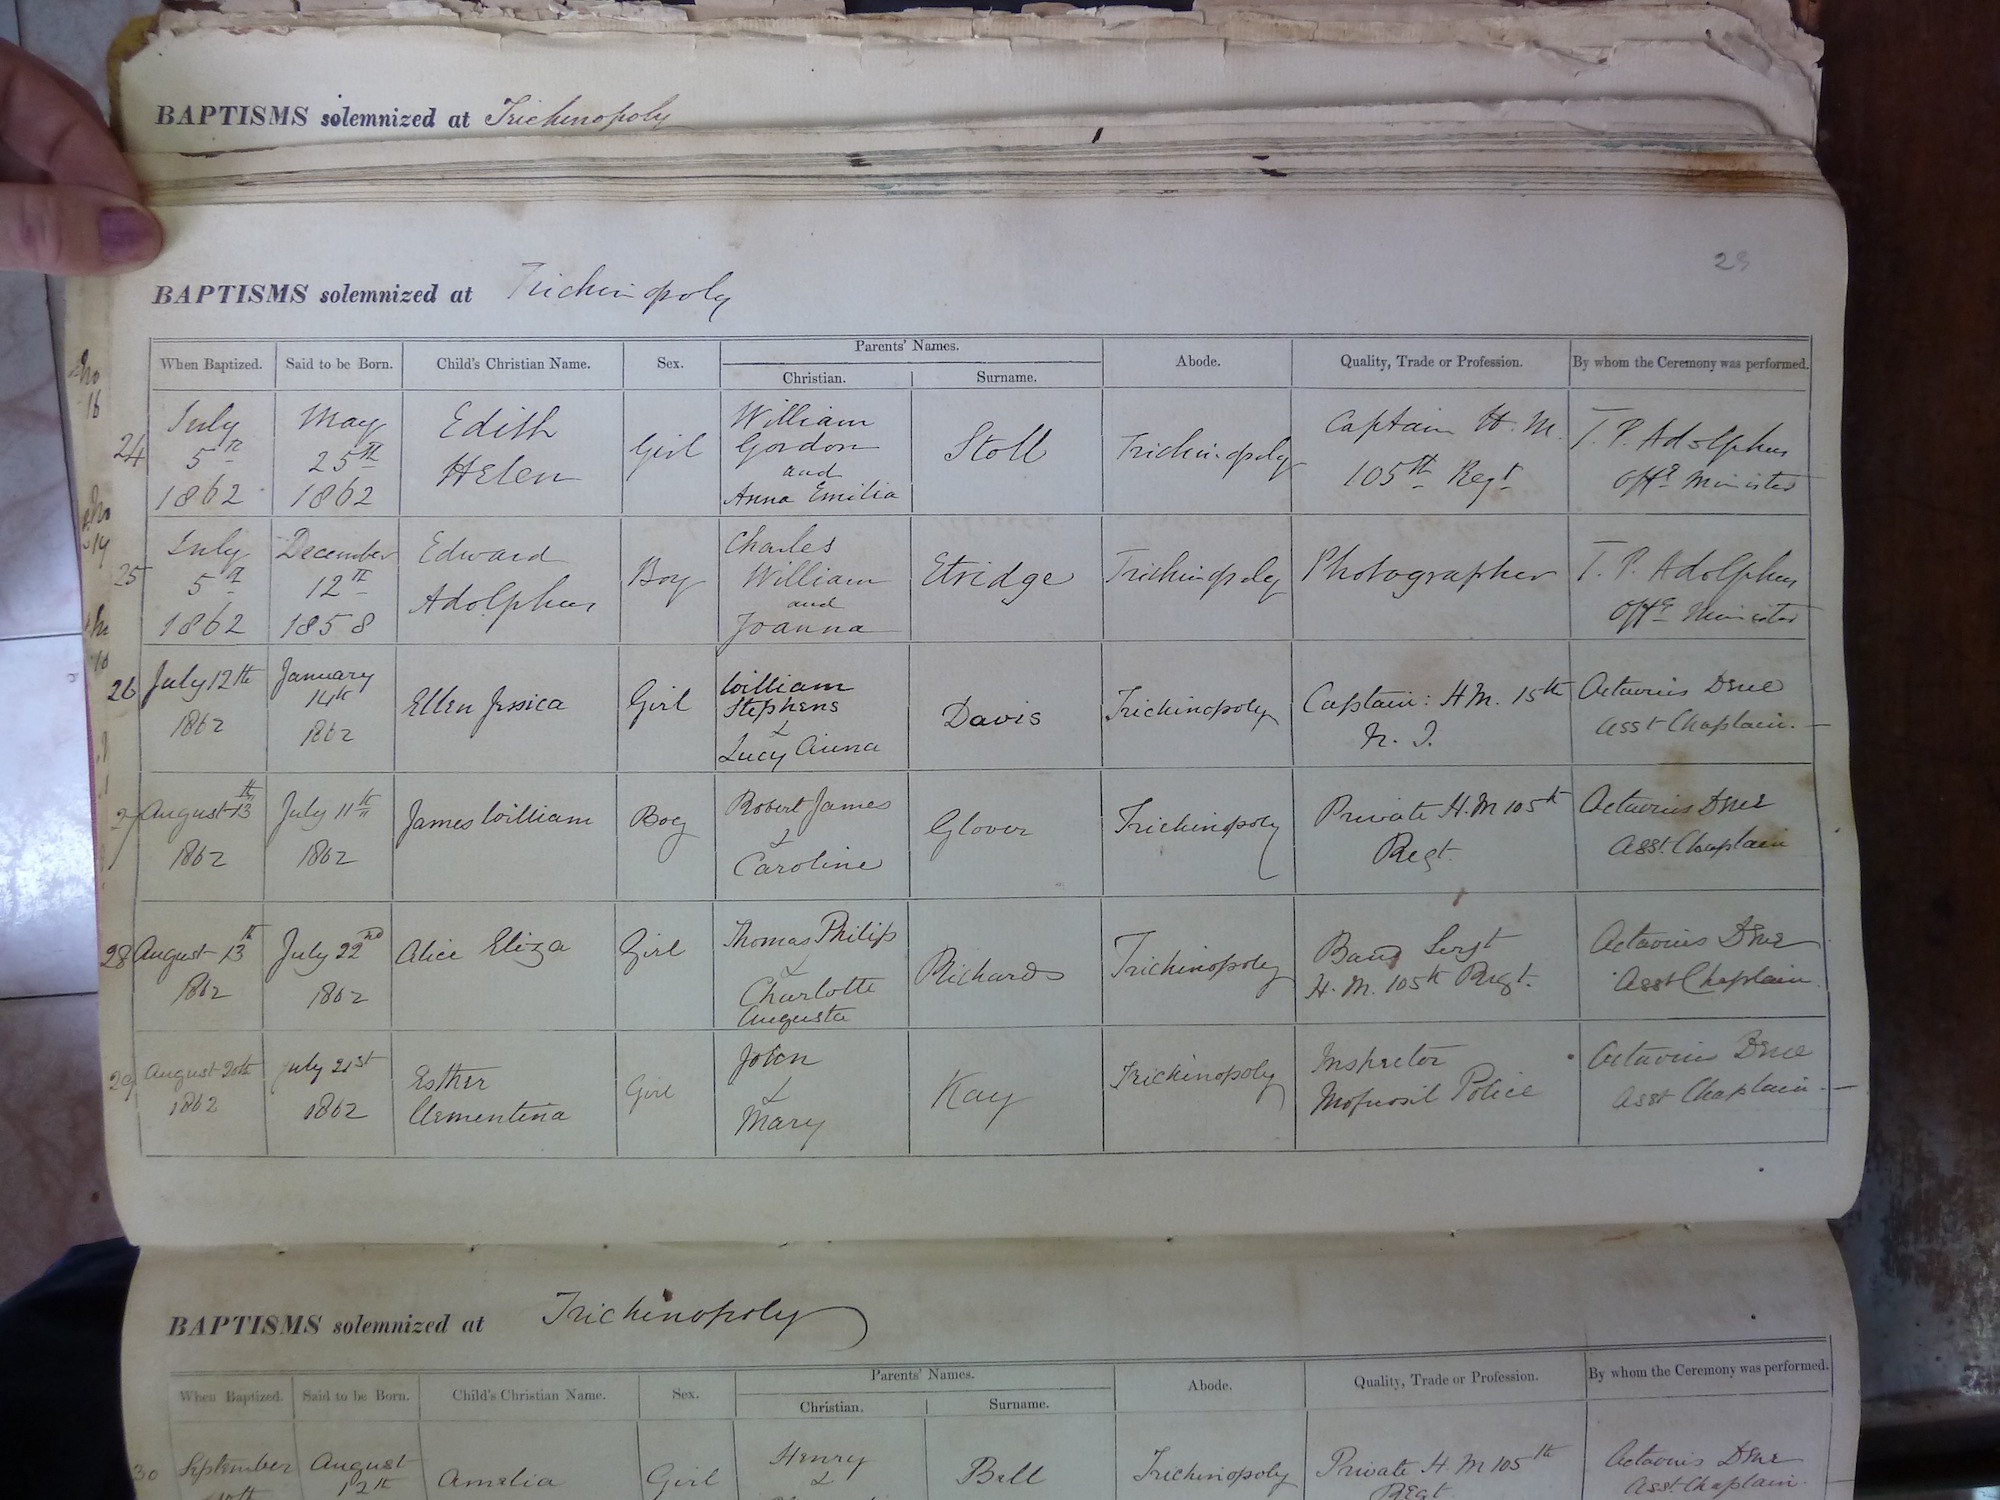 BAPTISMS solemnized at Trichinopoly
23
BAPTISMS solemnized at Trichinopoly
When Baptized. Said to be Born. Child's Christian Name. Sex. Parents' Names. Christian. Surname. Abode. Quality, Trade or Profession. By whom the Ceremony was performed.
24 July 5th 1862 May 25th 1862 Edith Helen Girl William Gordon and Anna Emilia Stoll Trichinopoly Captain H. M. 105th Regt T. P. Adolphus Offg Minister
25 July 5th 1862 December 12th 1858 Edward Adolphus Boy Charles William and Joanna Etridge Trichinopoly Photographer T. P. Adolphus Offg Minister
26 July 12th 1862 January 14th 1862 Ellen Jessica Girl William Stephens & Lucy Anna Davis Trichinopoly Captain: H.M. 15th N. I. Octavius Dene Asst Chaplain.
27 August 13th 1862 July 11th 1862 James William Boy Robert James & Caroline Glover Trichinopoly Private H.M 105th Regt. Octavius Dene Asst. Chaplain
28 August 13th 1862 July 22nd 1862 Alice Eliza Girl Thomas Philip & Charlotte Augusta Richards Trichinopoly Band Sergt H. M. 105th Regt. Octavius Dene Asst Chaplain.
29 August 20th 1862 July 21st 1862 Esther Clementina Girl John & Mary Kay Trichinopoly Inspector Mofussil Police Octavius Dene Asst Chaplain
BAPTISMS solemnized at Trichinopoly
When Baptized. Said to be Born. Child's Christian Name. Sex. Parents' Names. Christian. Surname. Abode. Quality, Trade or Profession. By whom the Ceremony was performed.
30 September 10th August 12th Amelia Girl Henry & Bell Trichinopoly Private H. M 105th Regt. Octavius Dene Asst. Chaplain